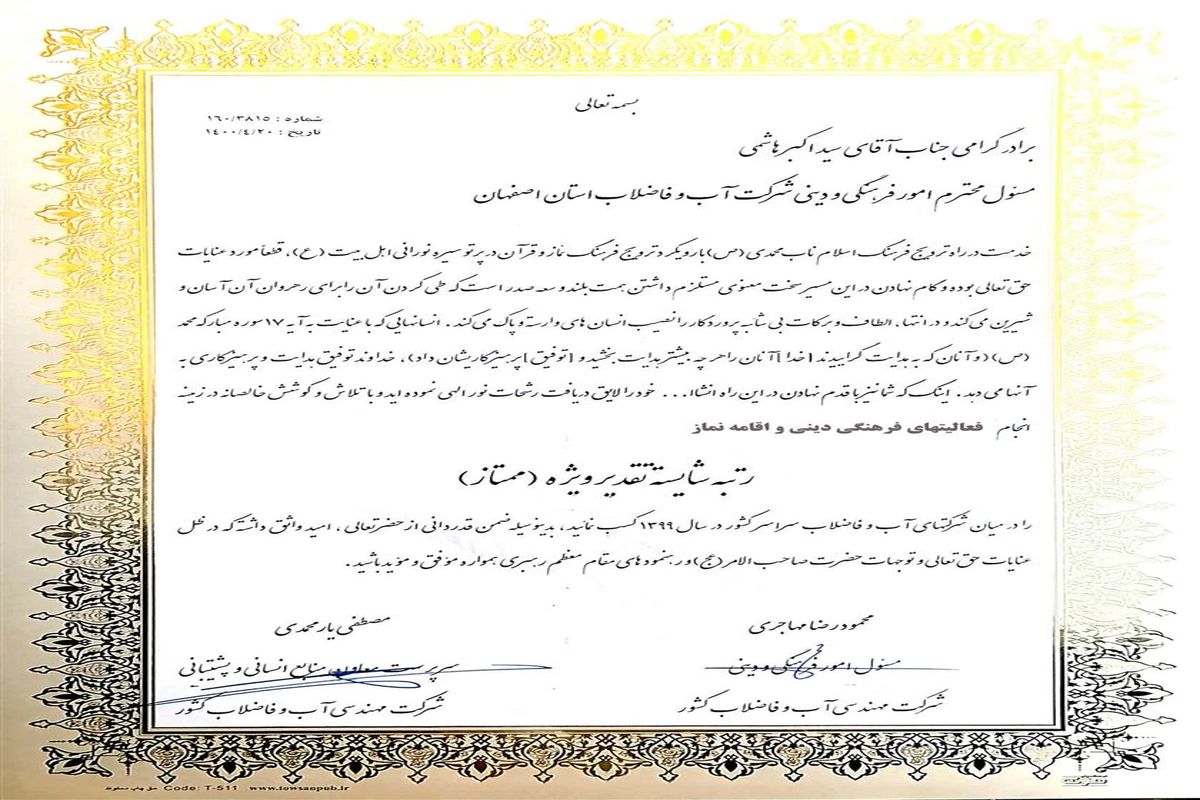 بسمه تعالی
شماره : ۱۶۰/۳۸۱۵
تاریخ : ۱۴۰۰/۴/۲۰
برادر گرامی جناب آقای سید اکبر هاشمی
مسئول محترم امور فرهنگی و دینی شرکت آب و فاضلاب استان اصفهان
خدمت در راه ترویج فرهنگ اسلام ناب محمدی (ص) با رویکرد ترویج فرهنگ نماز و قرآن در پرتو سیره نورانی اهل بیت (ع)، قطعاً مورد عنایات
حق تعالی بوده و گام نهادن در این مسیر سخت معنوی مستلزم داشتن همت بلند و سعه صدر است که طی کردن آن را برای رهروان آن آسان و
شیرین می کند و در انتها، الطاف و برکات بی شائبه پروردگار را نصیب انسان های وارسته و پاک می کند . انسانهایی که با عنایت به آیه ۱۷ سوره مبارکه محمد
(ص) (و آنان که به هدایت گراییدند [خدا] آنان را هر چه بیشتر هدایت بخشید و [توفیق] پرهیزگاریشان داد)، خداوند توفیق هدایت و پرهیزکاری به
آنها می دهد . اینک که شما نیز با قدم نهادن در این راه انشاا... خود را لایق دریافت رشحات نور الهی نموده اید و با تلاش و کوشش خالصانه در زمینه
انجام فعالیتهای فرهنگی دینی و اقامه نماز
رتبه شایسته تقدیر ویژه (ممتاز)
را در میان شرکتهای آب و فاضلاب سراسر کشور در سال ۱۳۹۹ کسب نمائید، بدینوسیله ضمن قدردانی از حضرتعالی ، امید واثق داشته که در ظل
عنایات حق تعالی و توجهات حضرت صاحب الامر (عج) و رهنمودهای مقام معظم رهبری همواره موفق و مؤید باشید .
محمودرضا مهاجری
مسئول امور فرهنگی و دینی
شرکت مهندسی آب و فاضلاب کشور
مصطفی یارمحمدی
سرپرست معاونت منابع انسانی و پشتیبانی
شرکت مهندسی آب و فاضلاب کشور
Code: T-511 www.towsanpub.ir